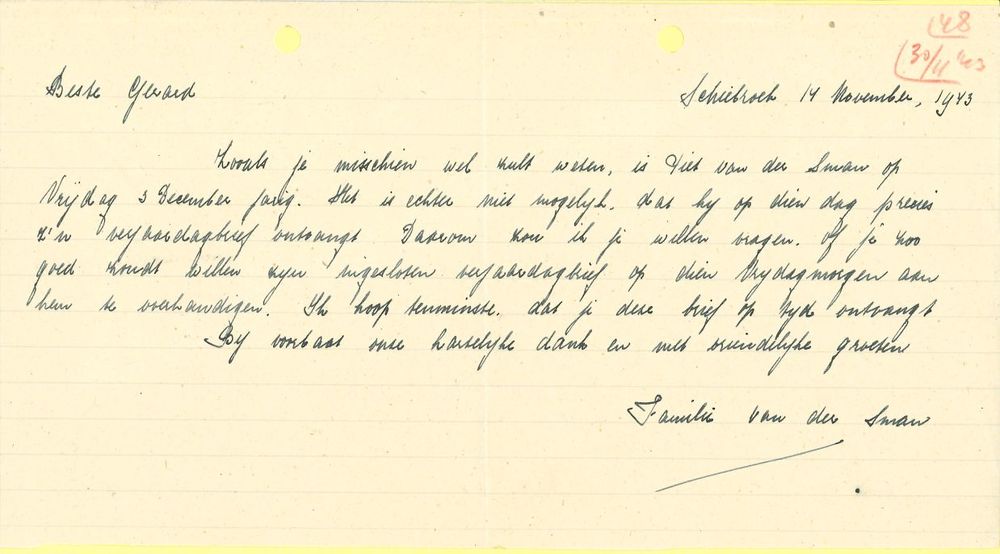 148
(30/11 '43
Beste Gerard
Schiebroek 14 November, 1943
Zooals je misschien wel zult weten, is Piet van der Sman op
Vrijdag 3 December jarig. Het is echter niet mogelijk, dat hij op dien dag precies
z'n verjaardagbrief ontvangt. Daarom zou ik je willen vragen, of je zoo
goed zoudt willen zijn ingesloten verjaardagbrief op dien Vrijdagmorgen aan
hem te overhandigen. Ik hoop tenminste, dat je deze brief op tijd ontvangt
Bij voorbaat onze hartelijke dank en met vriendelijke groeten
Familie van der Sman